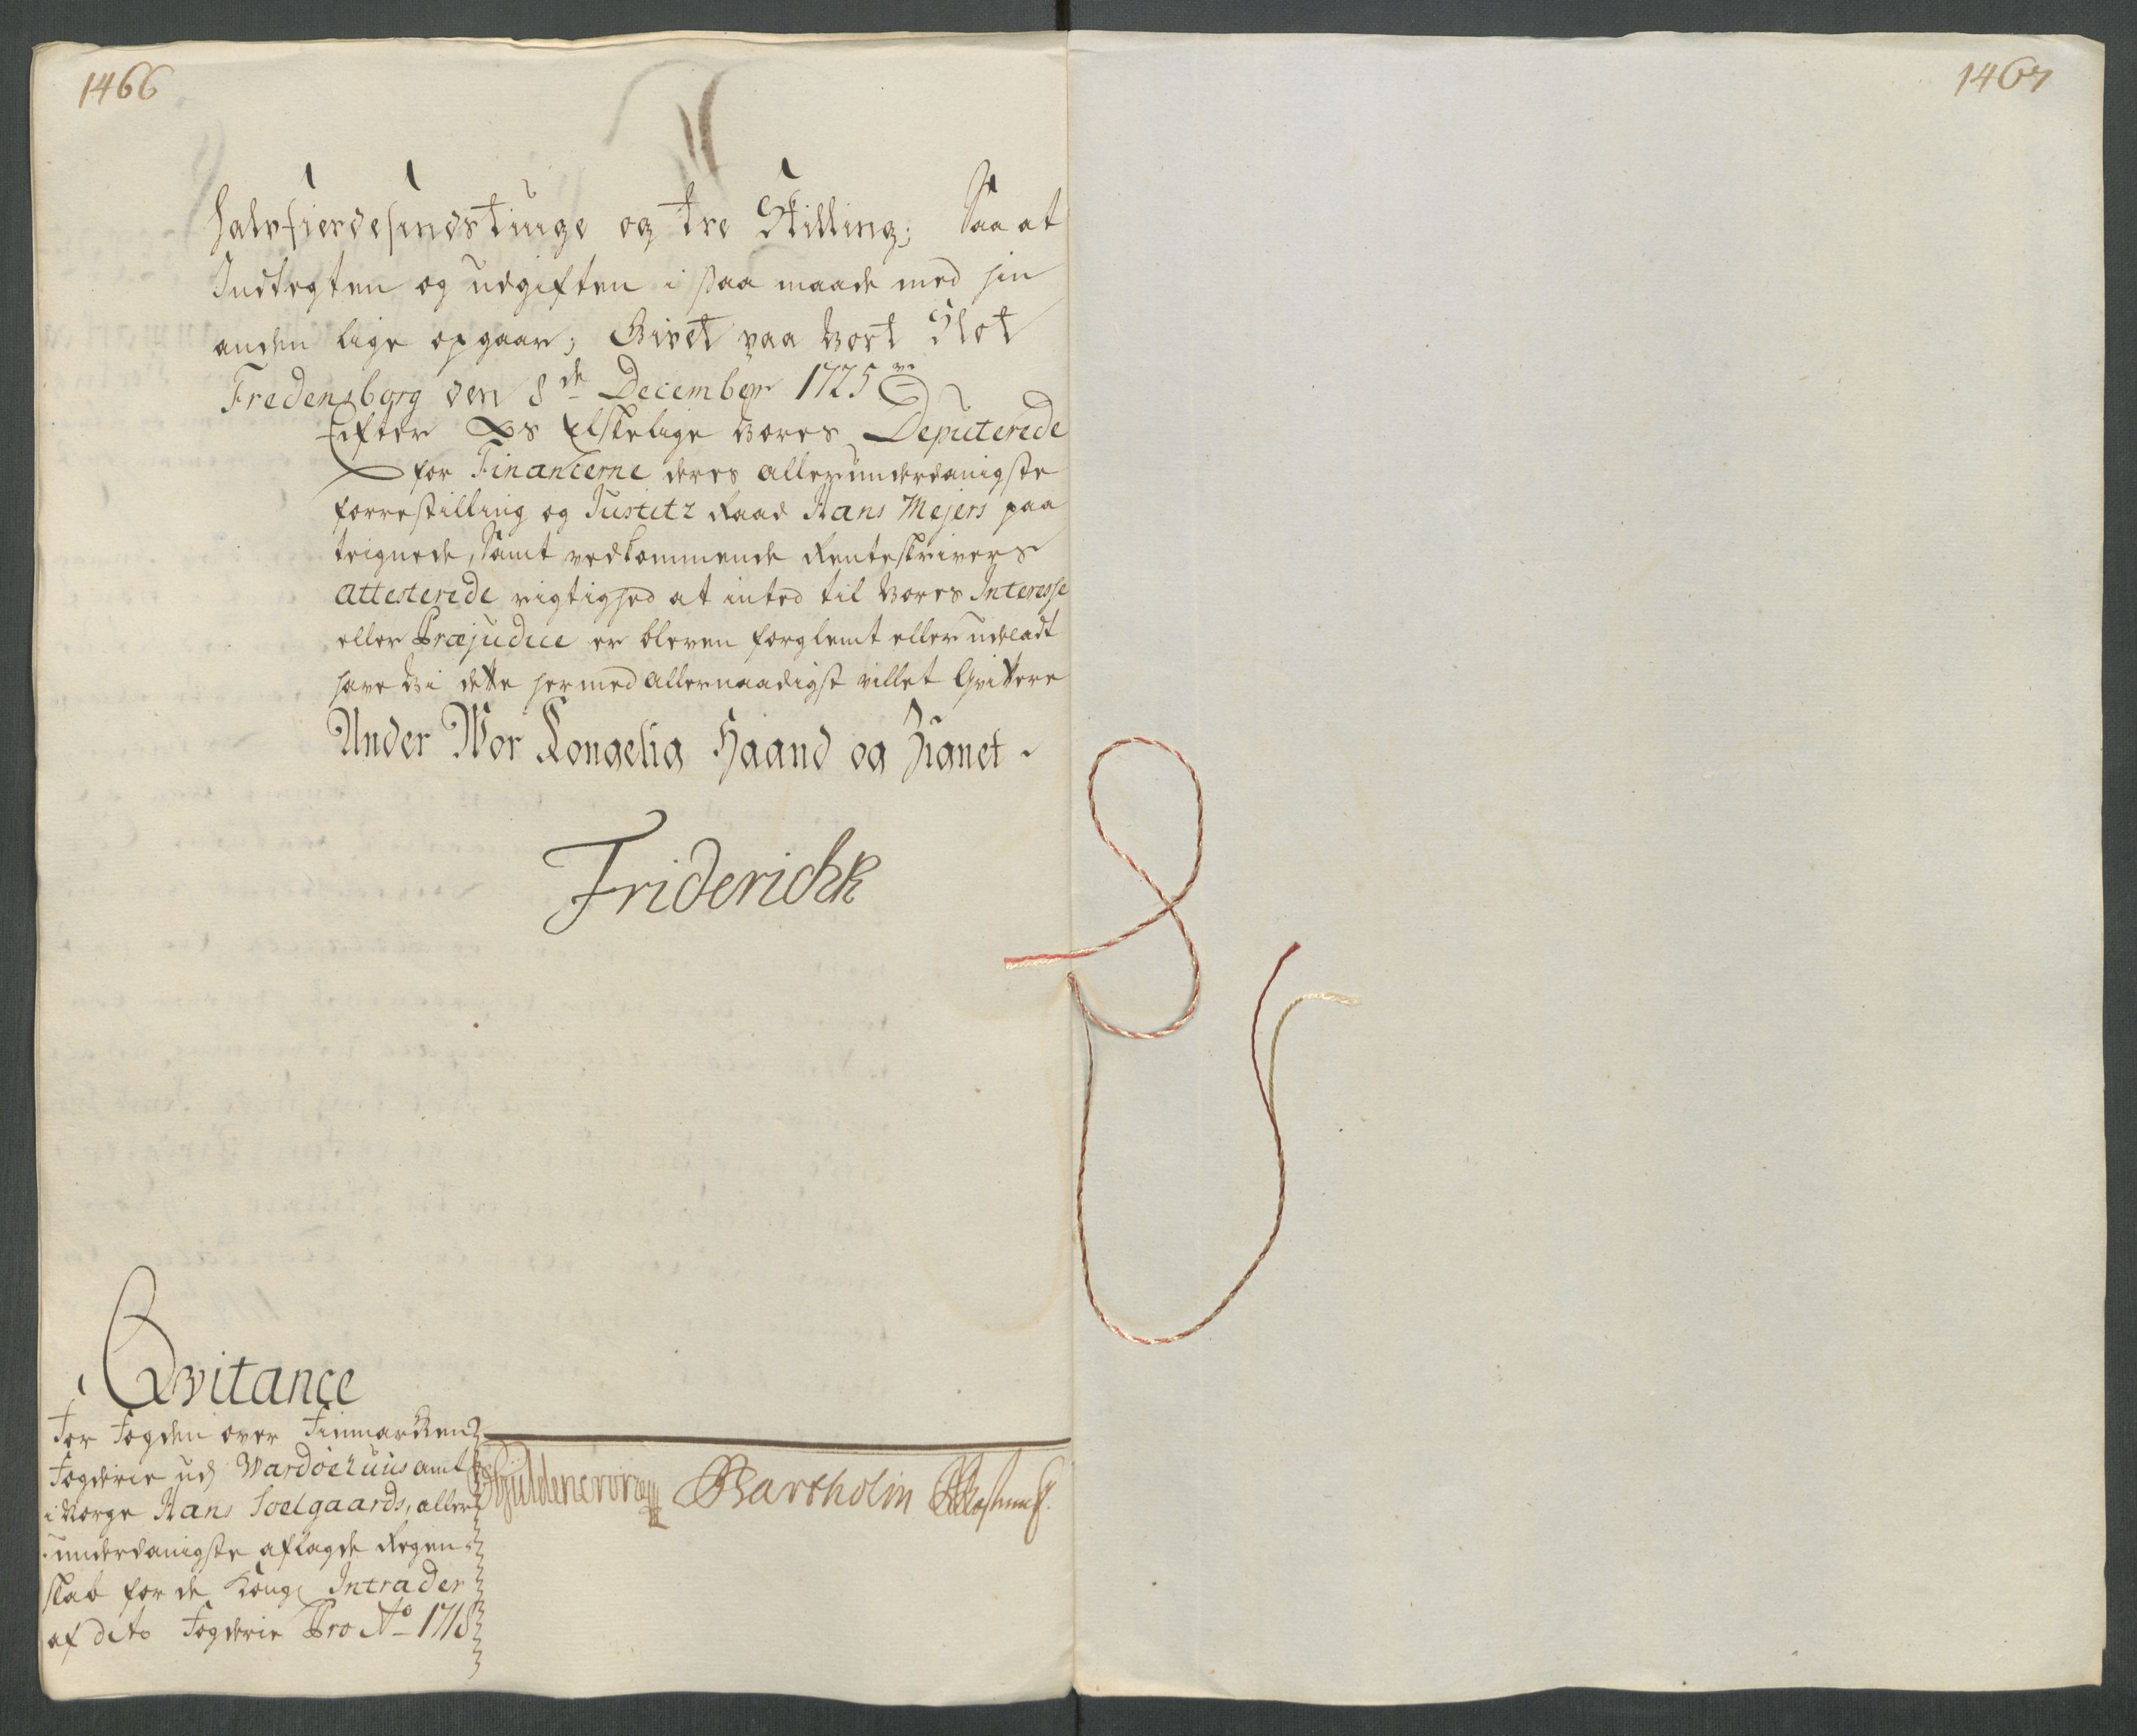 1466
1467
halvfierdesindstiuge og tre Skilling; Saa at
Indtegten og udgiften i saa maade med hin
anden lige opgaar; Givet paa Vort Slot
Fredensborg den 8de December 1725
Efter Os Elskelige Vores Deputerede
for Financerne deres allerunderdanigste
forrestilling og Justitz Raad Hans Mejers paa
teignede, Samt vedkommende Renteskrivers
Attesterede rigtighed at inted til Vores Interesse
eller Præjudice er bleven forglemt eller udeladt
have Vi dette hermed allernaadigst villet Qvittere
Under Wor Kongelig Haand og Zignet
Friderichk
Qvitance
For Fogden over Finmarken
Fogderie udj Wardøehuus amt
i Norge Hans Soelgaards, aller
underdanigste aflagde Regen
skab for de Kong Intrader
af dito Fogderie Pro Ao 1718
Gyldencrone Bartholin